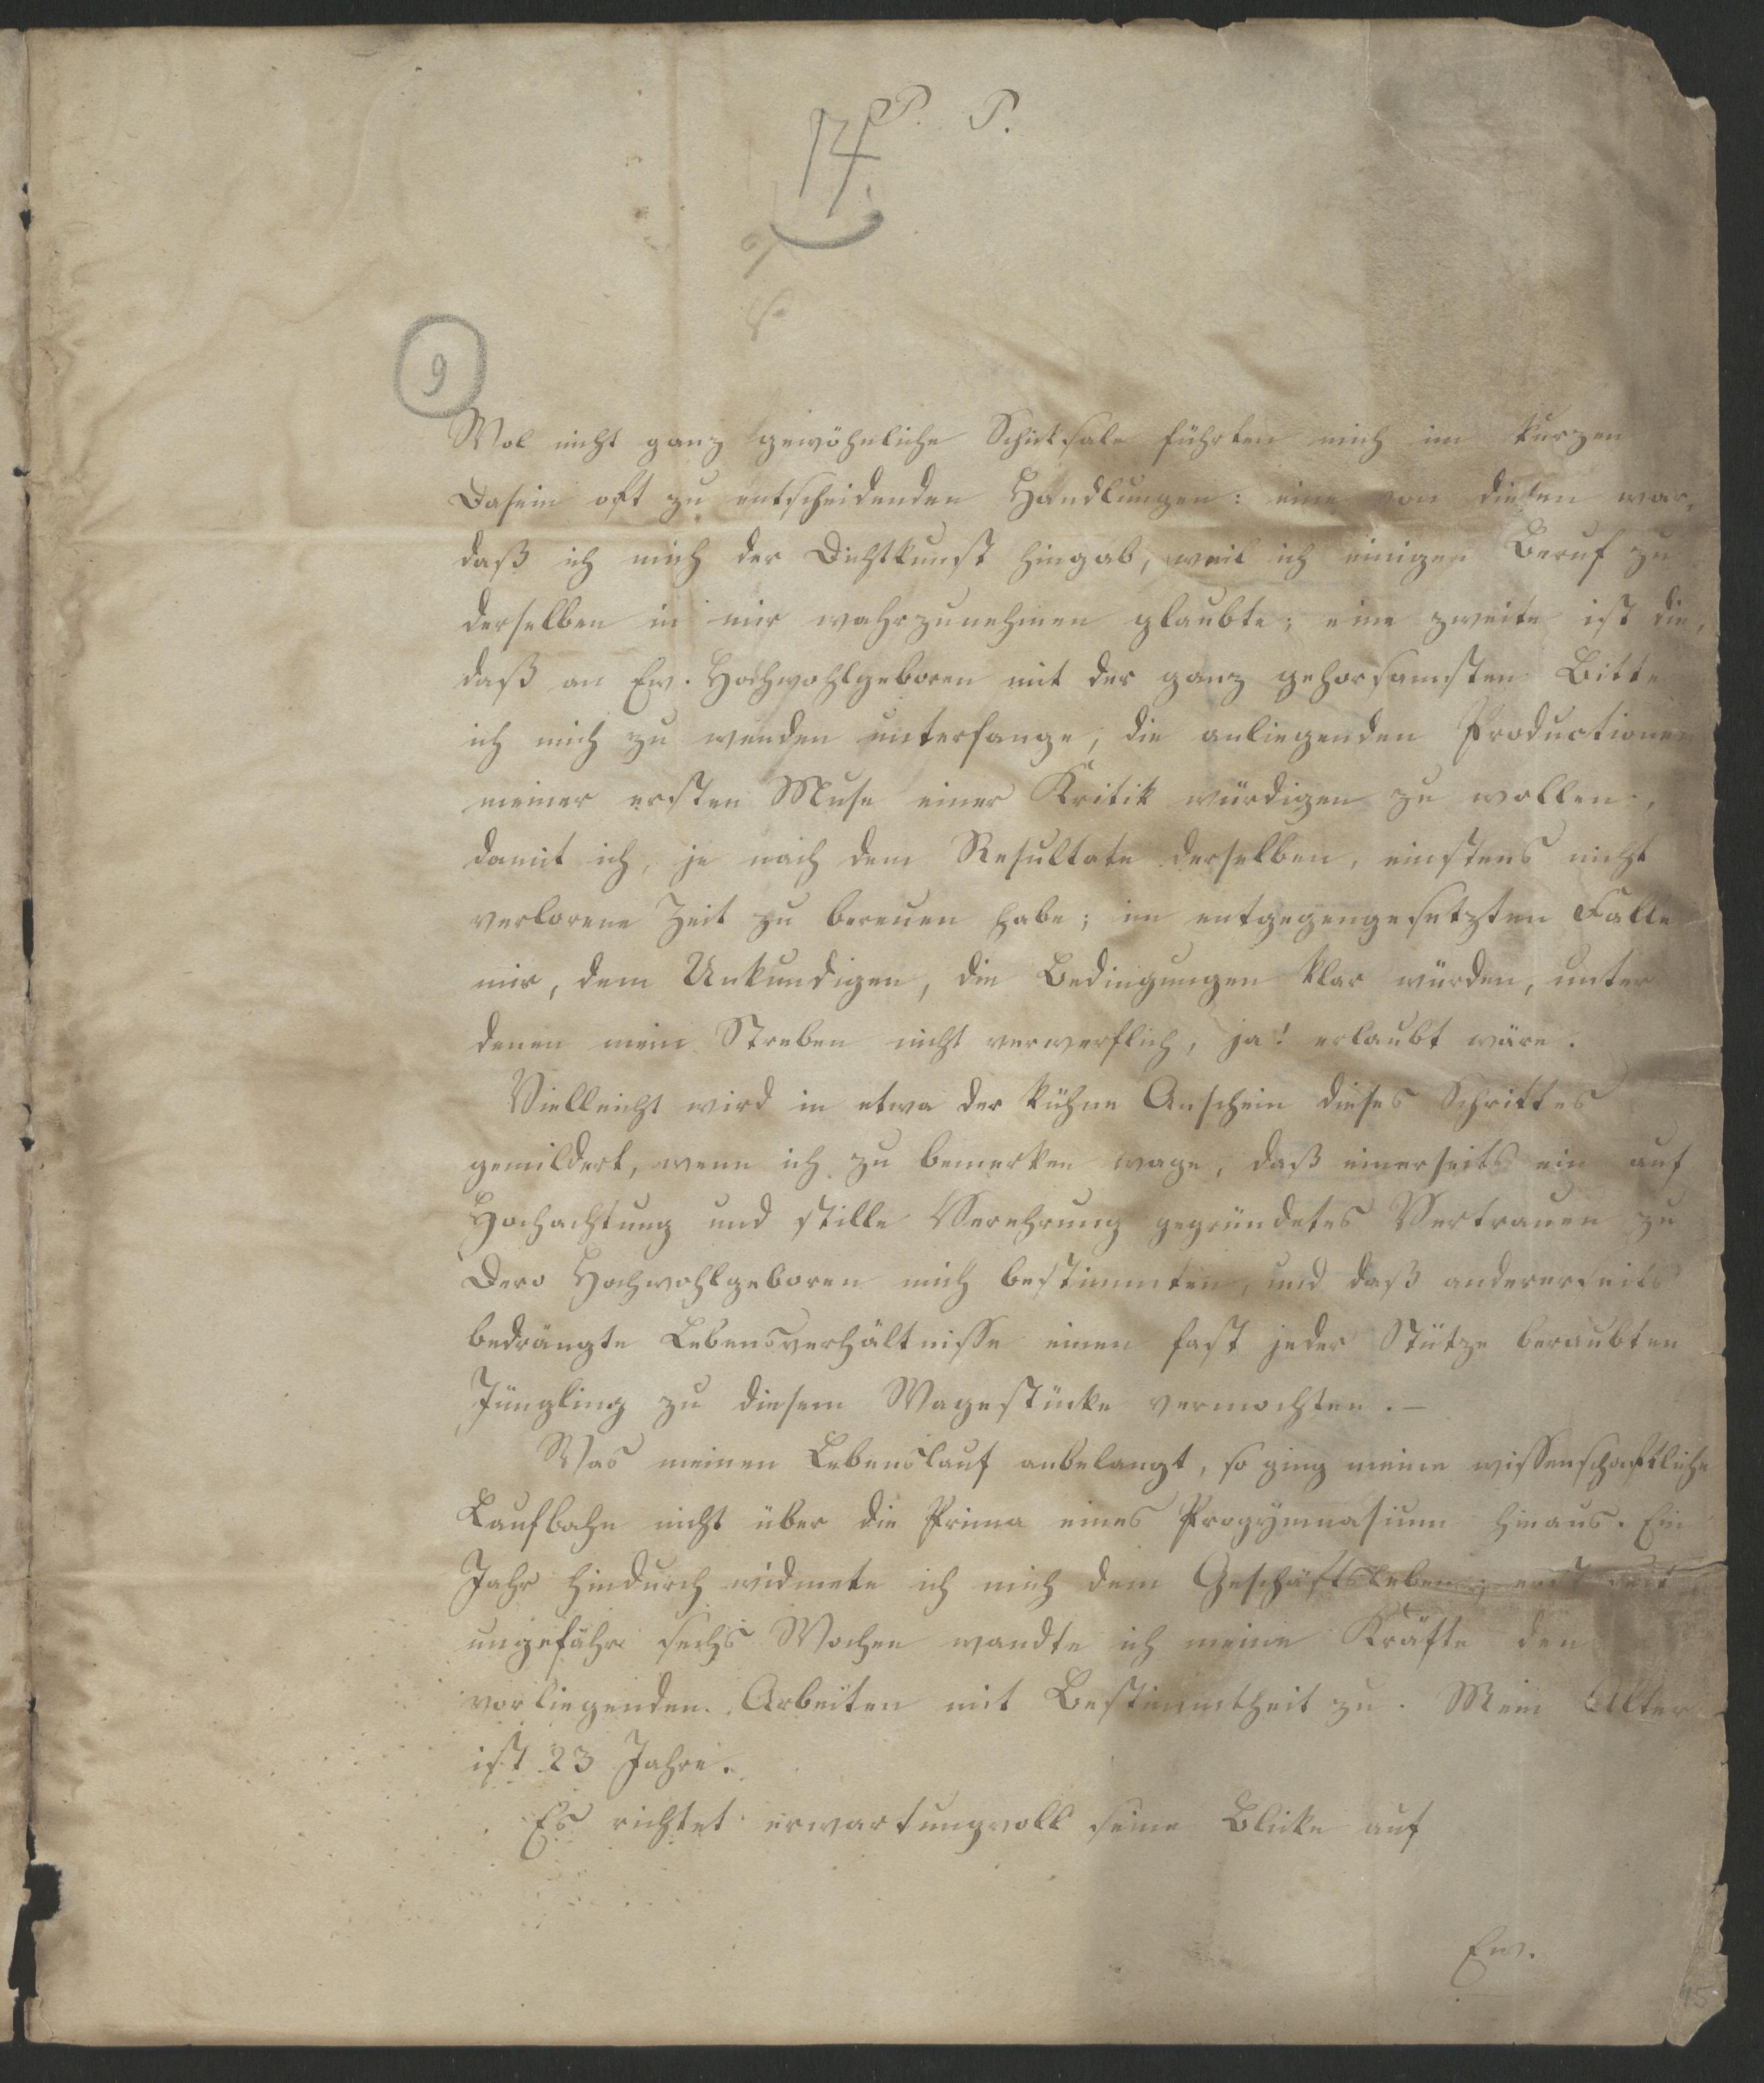 P. P.
14
9
Wol nicht ganz gewöhnliche Schicksale führten mich im kurzen
Dasein oft zu entscheidenden Handlungen: eine von diesen war,
daß ich mich der Dichtkunst hingab, weil ich einigen Beruf zu
derselben in mir wahrzunehmen glaubte; eine zweite ist die,
daß an Ew. Hochwohlgeboren mit der ganz gehorsamsten Bitte
ich mich zu wenden unterfange, die anliegenden Productionen
meiner ersten Muse einer Kritik würdigen zu wollen,
damit ich, je nach dem Resultate derselben, einstens nicht
verlorene Zeit zu bereuen habe; im entgegengesetzten Falle
mir, dem Unkundigen, die Bedingungen klar würden, unter
denen mein Streben nicht verwerflich, ja! erlaubt wäre.
Vielleicht wird in etwa der kühne Anschein dieses Schrittes
gemildert, wenn ich zu bemerken wage, daß einerseits ein auf
Hochachtung und stille Verehrung gegründetes Vertrauen zu
Dero Hochwohlgeboren mich bestimmten, und daß andererseits
bedrängte Lebensverhältnisse einen fast jeder Stütze beraubten
Jüngling zu diesem Wagestücke vermochten. —
Was meinen Lebenslauf anbelangt, so ging meine wissenschaftliche
Laufbahn nicht über die Prima eines Progymnasium hinaus. Ein
Jahr hindurch widmete ich mich dem Geschäftsleben; erst seit
ungefähr sechs Wochen wandte ich meine Kräfte den
vorliegenden Arbeiten mit Bestimmtheit zu. Mein Alter
ist 23 Jahre.
Es richtet erwartungvoll seine Blicke auf
Ew.
15